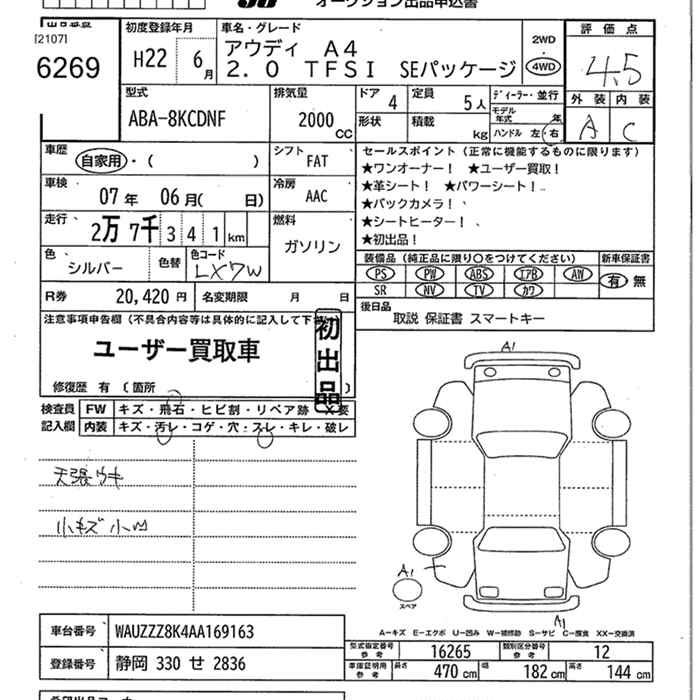 オークション出品申込書
出品番号
[2107]
6269
初度登録年月
H22 6月
車名・グレード
アウディ A4
2.0 TFSI SEパッケージ
2WD
・
4WD
評価点
4.5
外装 内装
A C
型式
ABA-8KCDNF
排気量
2000 CC
ドア 4
定員 5人
形状
積載 kg
ディーラー・並行
モデル年式 年
ハンドル 左・右
車歴
自家用・( )
シフト
FAT
車検
07年 06月( 日)
冷房
AAC
走行
2万7千341km
燃料
ガソリン
色
シルバー
色替
色コード
LX7W
R券 20,420円
名変期限 月 日
セールスポイント(正常に機能するものに限ります)
★ワンオーナー! ★ユーザー買取!
★革シート! ★パワーシート!
★バックカメラ!
★シートヒーター!
★初出品!
装備品(純正品に限り○をつけてください)
PS PW ABS エアB AW
SR NV TV カワ
新車保証書
有 無
後日品
取説 保証書 スマートキー
注意事項申告欄(不具合内容等は具体的に記入して下
ユーザー買取車
初出品
修復歴 有(箇所 )
検査員記入欄
FW キズ・飛石・ヒビ割・リペア跡・X要
内装 キズ・汚レ・コゲ・穴・スレ・キレ・破レ
天張ウキ
小キズ小凹
A1
A1
スペア
A1
A-キズ E-エクボ U-凹み W-補修跡 S-サビ C-腐食 XX-交換済
車台番号 WAUZZZ8K4AA169163
登録番号 静岡 330 せ 2836
型式指定番号 参考 16265
類別区分番号 参考 12
車庫証明用 参考 長さ 470cm 幅 182cm 高さ 144cm